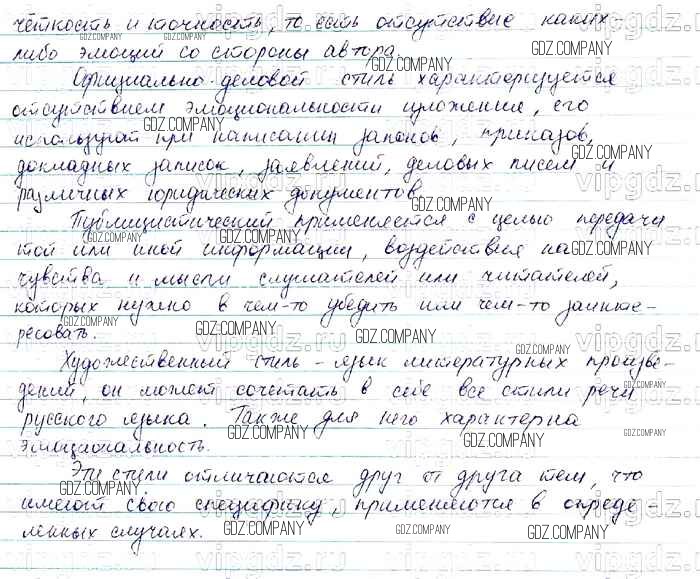 чёткость и точность, то есть отсутствие каких-
либо эмоций со стороны автора.
Официально-деловой стиль характеризуется
отсутствием эмоциональности изложения, его
используют при написании законов, приказов,
докладных записок, заявлений, деловых писем и
различных юридических документов
Публицистический применяется с целью передачи
той или иной информации, воздействия на
чувства и мысли слушателей или читателей,
которых нужно в чем-то убедить или чем-то заинте-
ресовать.
Художественный стиль - язык литературных произве-
дений, он может сочетать в себе все стили речи
русского языка. Также для него характерна
эмоциональность.
Эти стили отличаются друг от друга тем, что
имеют свою специфику, применяются в опреде-
ленных случаях.